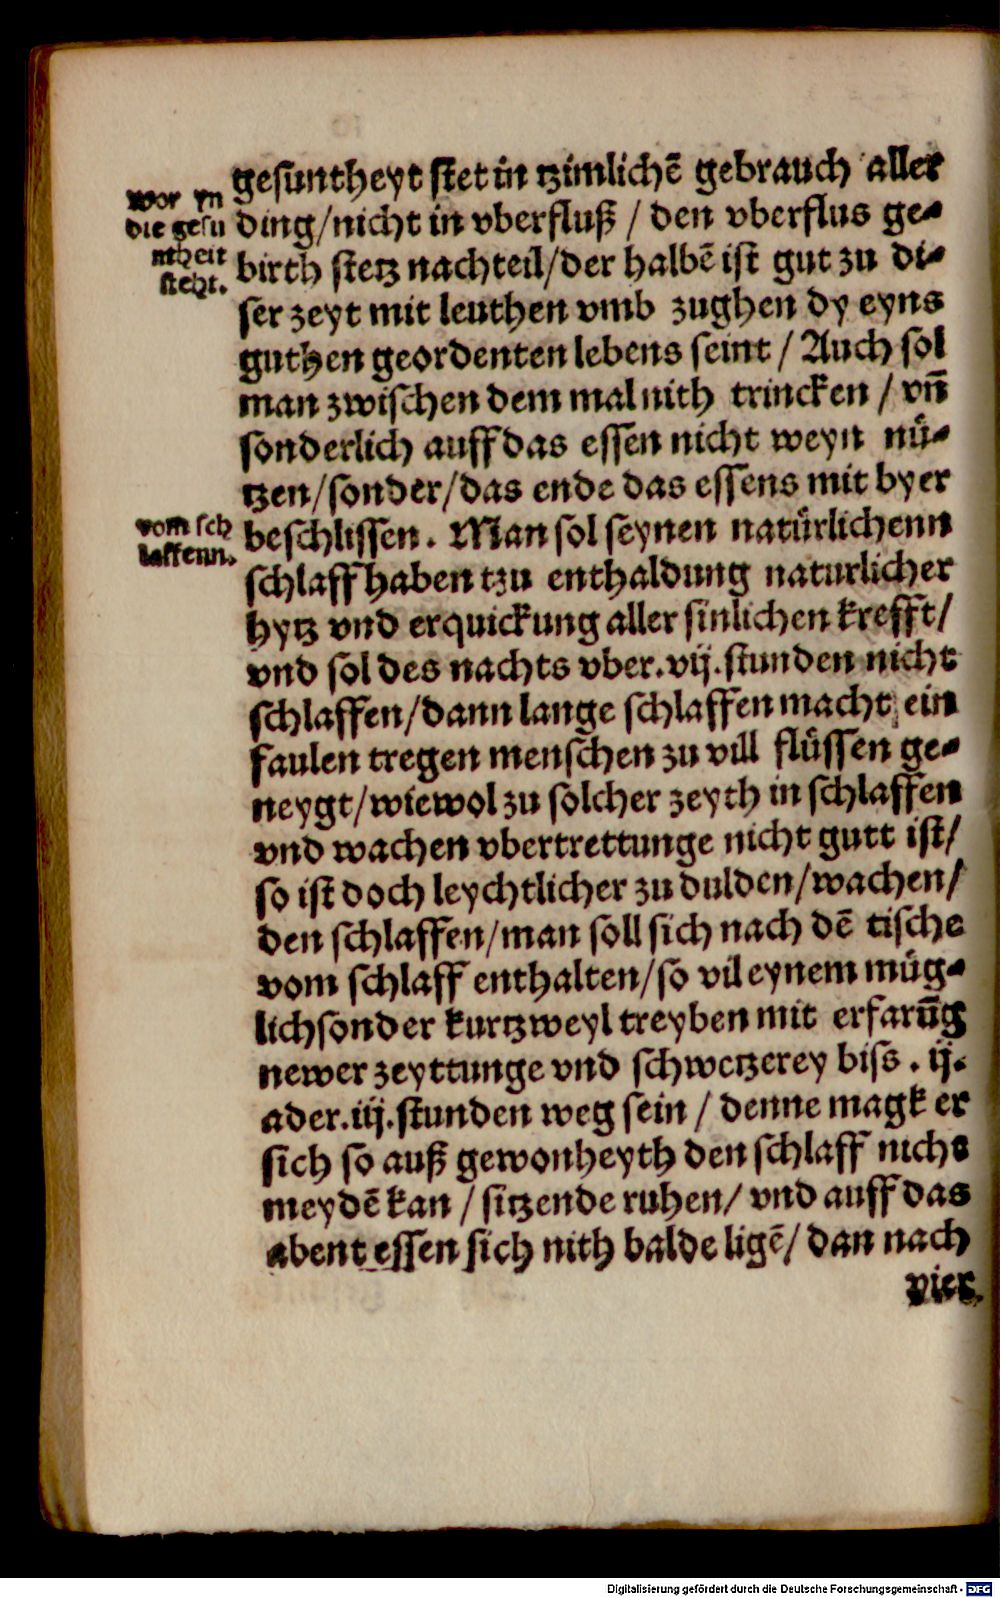 wor yn
die gesu
ntheit
steht.
gesuntheyt stet in tzimlichē gebrauch aller
ding/nicht in vberfluß / den vberflus ge-
birth stetz nachteil/der halbē ist gut zu di-
ser zeyt mit leuthen vmb zughen dy eyns
guthen geordenten lebens seint / Auch sol
man zwischen dem mal nith trincken / vn̄
sonderlich auff das essen nicht weyn nü-
tzen/sonder/das ende das essens mit byer
vom sch
laffenn.
beschlissen. Man sol seynen natürlichenn
schlaff haben tzu enthaldung naturlicher
hytz vnd erquickung aller sinlichen krefft/
vnd sol des nachts vber.vij.stunden nicht
schlaffen/dann lange schlaffen macht ein
faulen tregen menschen zu vill flüssen ge-
neygt/wiewol zu solcher zeyth in schlaffen
vnd wachen vbertrettunge nicht gutt ist/
so ist doch leychtlicher zu dulden/wachen/
den schlaffen/man soll sich nach dē tische
vom schlaff enthalten/so vil eynem müg-
lich sonder kurtzweyl treyben mit erfarūg
newer zeyttunge vnd schwetzerey biss. ij.
ader.iij.stunden weg sein / denne magk er
sich so auß gewonheyth den schlaff nicht
meydē kan / sitzende ruhen/ vnd auff das
abent essen sich nith balde ligē/ dan nach
vier.
Digitalisierung gefördert durch die Deutsche Forschungsgemeinschaft - DFG